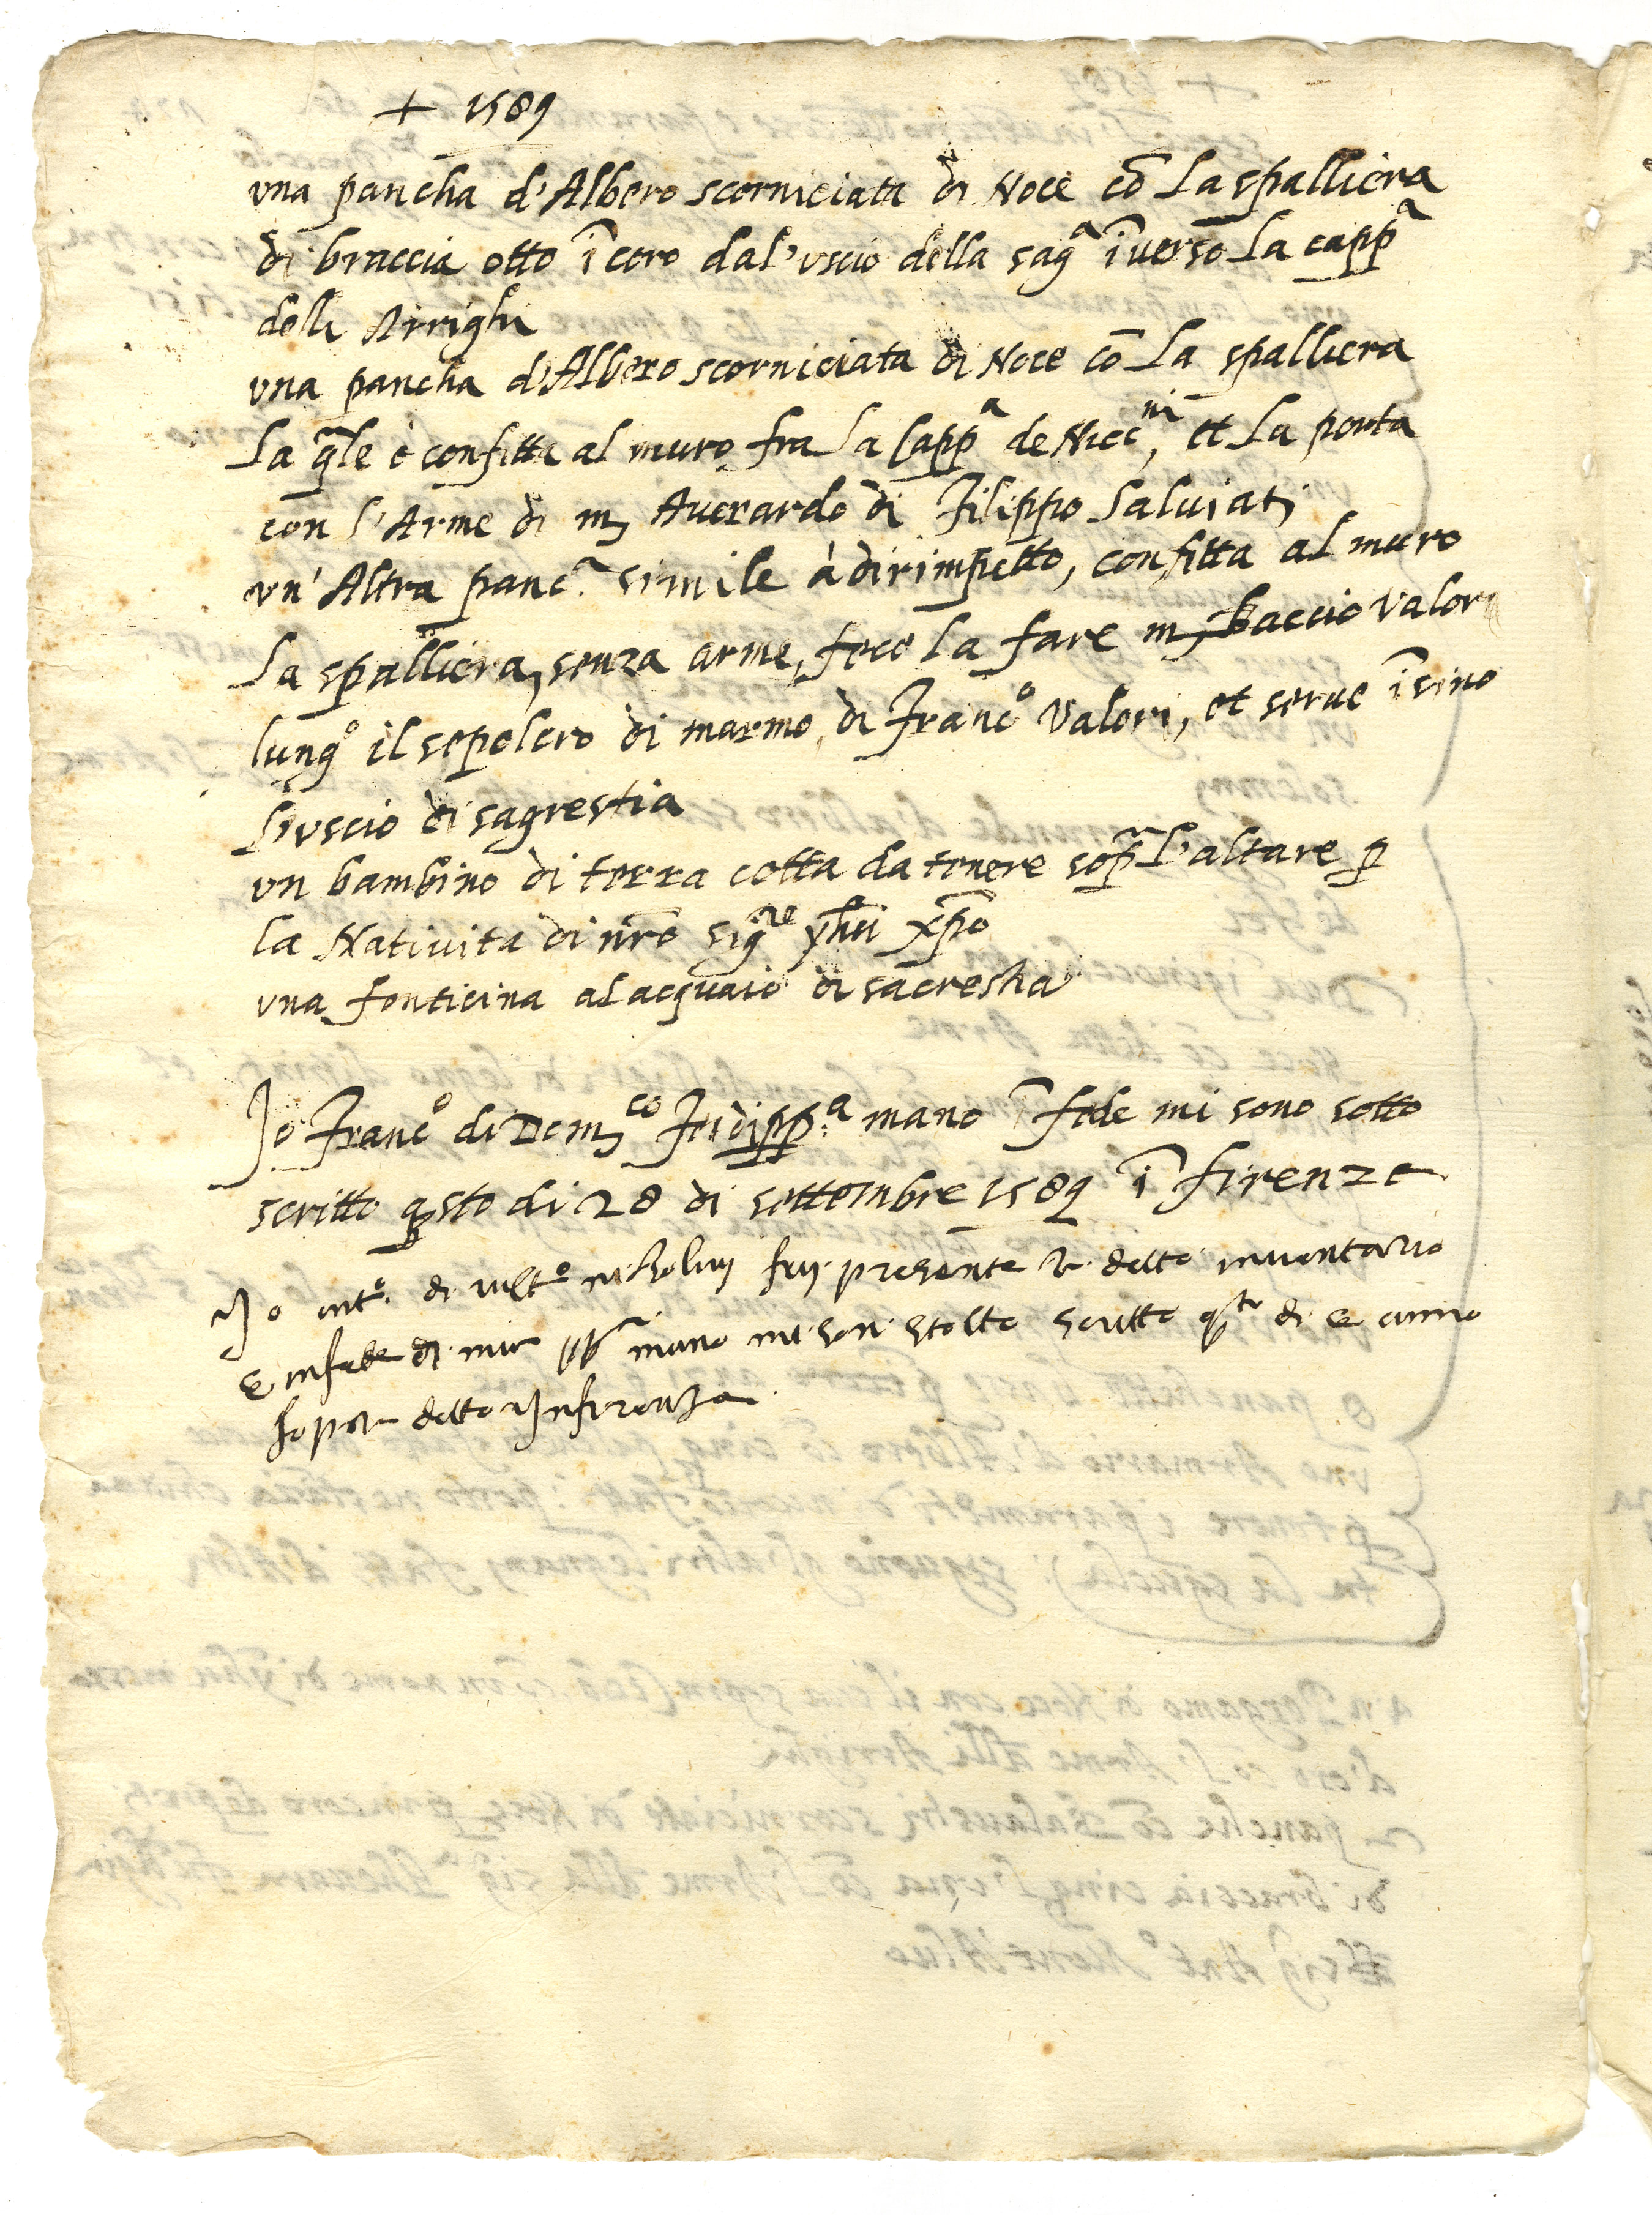 + 1589
vna pancha d'Albero scorniciata di Noce cō La spalliera
di braccia otto ī coro dal'vscio della sagᵃ īuerso La cappᵃ
delli Arrighi
vna pancha d'Albero scorniciata di Noce cō La spalliera
La q̄le è confitta al muro fra La Cappᵃ de Niccⁿⁱ, et La porta
con l'Arme di m, Auerardo di Filippo Saluiati
vn'Altra pancᵃ. simile à dirimpetto, confitta al muro
La spalliera, senza arme, fece la fare m, Baccio Valori
lungº il sepolcro di marmo, di Francº Valori, et serue īsino
L'vscio di sagrestia
vn bambino di terra cotta da tenere soprᵃ L'altare ꝑ
la Natiuita di nr̄o sigʳᵉ yhū xp̄o
vna fonticina al acquaio di sacrestia
Io Francº di Domᶜᵒ di ppᵃ mano ī fede mi sono sotto
scritto qsto di 28 di settembre 1589 ī firenze
Io antº. di fuj presente detto inuentario
e in fede di mia ppᵃ mano mi son sotto scritto qᵗᵒ di e anno
sopra detto In firenze